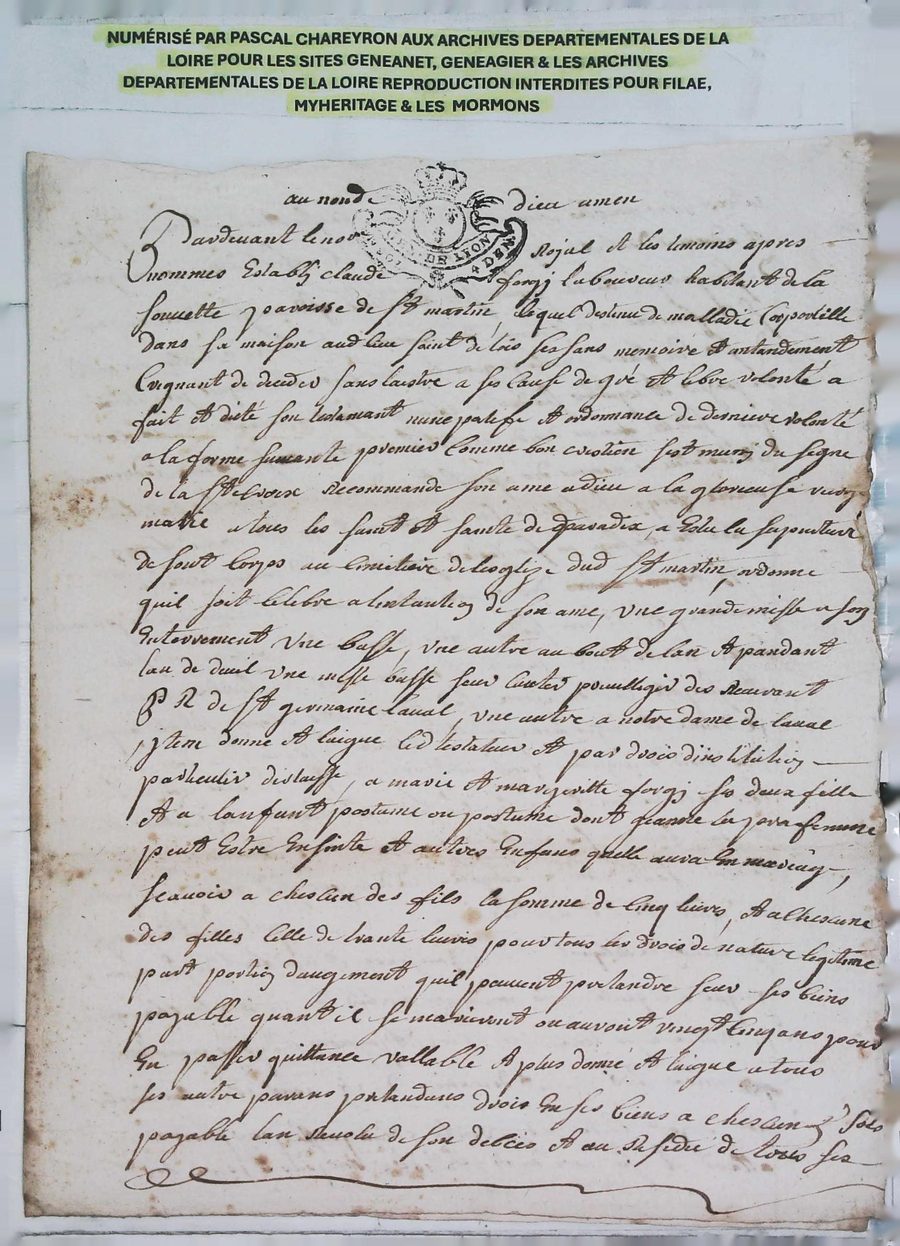 NUMÉRISÉ PAR PASCAL CHAREYRON AUX ARCHIVES DEPARTEMENTALES DE LA
LOIRE POUR LES SITES GENEANET, GENEAGIER & LES ARCHIVES
DEPARTEMENTALES DE LA LOIRE REPRODUCTION INTERDITES POUR FILAE,
MYHERITAGE & LES MORMONS
au nom de dieu amen
DE LYON
Pardevant le no Royal et les temoins apres
nommes Establj claude forgj laboureur habitant de la
paroisse de st martin, lequel destenu de malladie Corporelle
dans sa maison aud lieu saint de tois ses sans memoire et antandement
Creignant de deceder sans laistre a ses cause de gré et libre volonté a
fait et dicté son testamant nuncupatife et ordonnance de derniere volonté
a la forme suivante premier comme bon crestien sest muni du signe
de la ste croix Recommande son ame a dieu a la glorieuse vierge
marie a tous les saint et sainte de paradix, a Eslu sa sepulture
de sont Corps au Cimetiere de leglize dud st martin, ordonne
quil soit celebre a lintantion de son ame, vne grande messe a son
Enterrement vne basse, vne autre au bout de lan et pandant
lan de deuil vne messe basse seur lautel
P R de st germain laval, vne autre a notre dame de laval
jtem donne et laigue led testateur et par drois dinstitution
particulir delaisse, a marie et margueritte forgj ses deux fille
et a lanfant postume ou postume dont jeanne sa femme
peut Estre Ensinte et autres Enfans quelle aura En mariage,
scavoir a chescun des fils la somme de cinq livres, et a chescune
des filles celle de trante livres pour tous les drois de nature legitime
part portion daugement quil peuvent pretandre seur ses biens
payable quant il se marieront ou auront vingt cinq ans pour
En passer quittance vallable et plus donne et laigue a tous
ses autre parans pretandans drois En ses biens a chescun 5 sols
payable lan Revolu de son deces et au Residu de tous ses